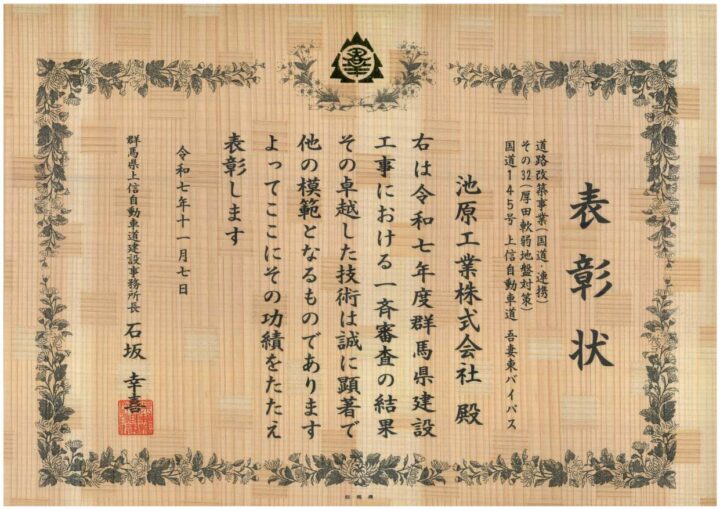 表彰状
道路改築事業(国道・連携)
その32(厚田軟弱地盤対策)
国道145号 上信自動車道 吾妻東バイパス
池原工業株式会社 殿
右は令和七年度群馬県建設
工事における一斉審査の結果
その卓越した技術は誠に顕著で
他の模範となるものであります
よってここにその功績をたたえ
表彰します
令和七年十一月七日
群馬県上信自動車道建設事務所長 石坂 幸喜